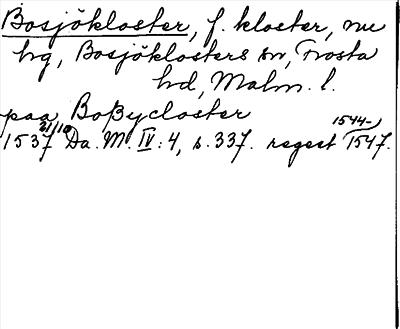 Bosjökloster, f. kloster, nu
hg, Bosjöklosters sn, Frosta
hd, Malm. l.
paa Boßycloster
1537 21/10 Da. M. IV: 4, s. 337. regest 1544-1547.